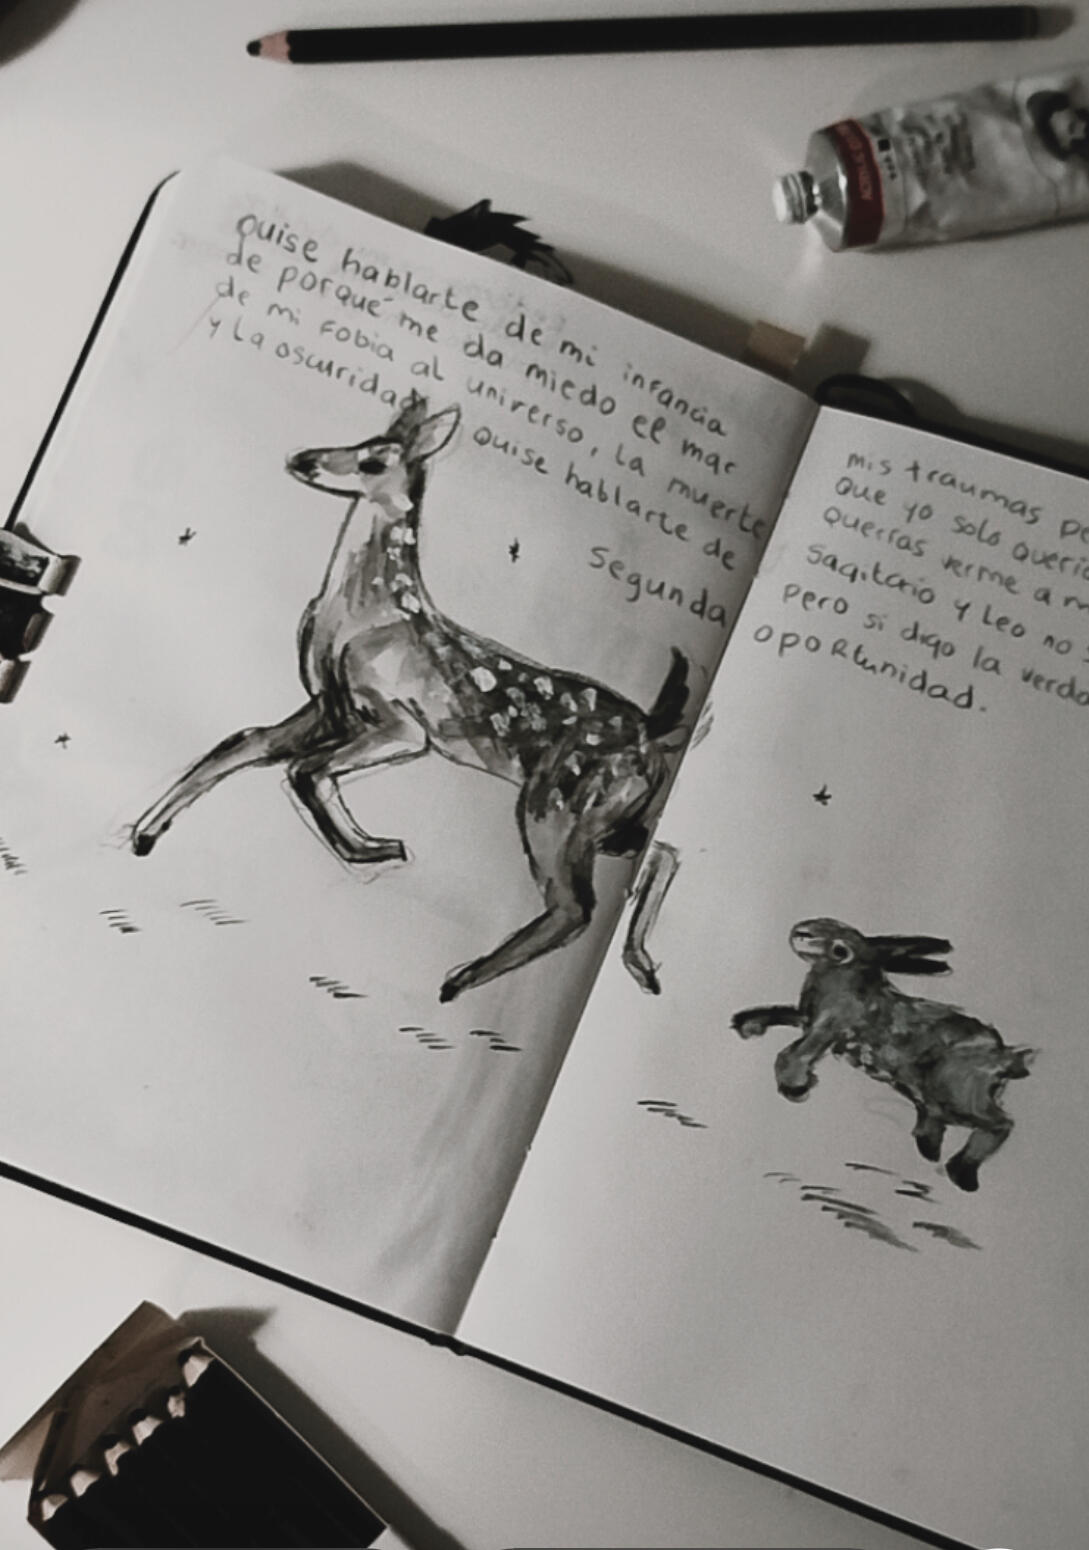 Quise hablarte de mi infancia
de porqué me da miedo el mar
de mi fobia al universo, la muerte
y la oscuridad Quise hablarte de
Segunda
mis traumas pe
que yo solo quería
Querrías verme a m
Sagitario y Leo no s
pero si digo la verda
oportunidad.